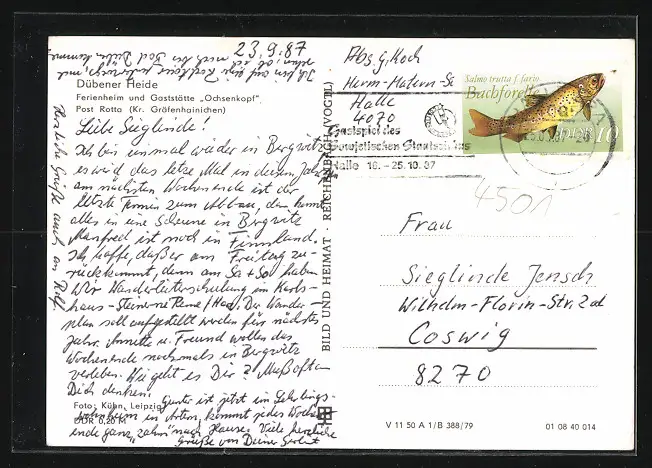 23.9.87
Ich bin auf dem
Dübener Heide
Ferienheim und Gaststätte „Ochsenkopf"
Post Rotta (Kr. Gräfenhainichen)
Liebe Sieglinde!
Ich bin einmal wieder in Bergwitz
es wird das letze Mal in diesem Jahr
am nächsten Wochenende ist der
letzte Termin zum Abbau, dann kommt
alles in eine Scheune in Bergwitz
Manfred ist noch in Finnland.
Ich hoffe, daß er am Freitag zu-
rückkommt, denn am Sa + So haben
wir Wanderleiterschulung im Karls-
haus - Steinerne Renne/Harz. Der Wander-
plan soll aufgestellt werden für nächstes
Jahr. Annette u. Freund wollen das
Wochenende nochmals in Bergwitz
verleben. Wie geht es Dir? Muß oft an
Dich denken.
Gunter ist jetzt im Lehrlings-
wohnheim in Artern, kommt jedes Woche-
ende ganz „zahm" nach Hause. Viele herzliche
Grüße von Deiner
Herzliche Grüße auch an
Foto: Kühn, Leipzig
DDR 0,20 M
BILD UND HEIMAT · REICHENBACH (VOGTL)
Abs. G. Koch
Herm.-Matern-Str.
Halle
4070
Gastspiel des
Sowjetischen Staatszirkus
Halle 16. - 25.10.87
Salmo trutta f. fario
Bachforelle
DDR 10
4501
Frau
Sieglinde Jensch
Wilhelm-Florin-Str. 2d
Coswig
8270
V 11 50 A 1/B 388/79
01 08 40 014